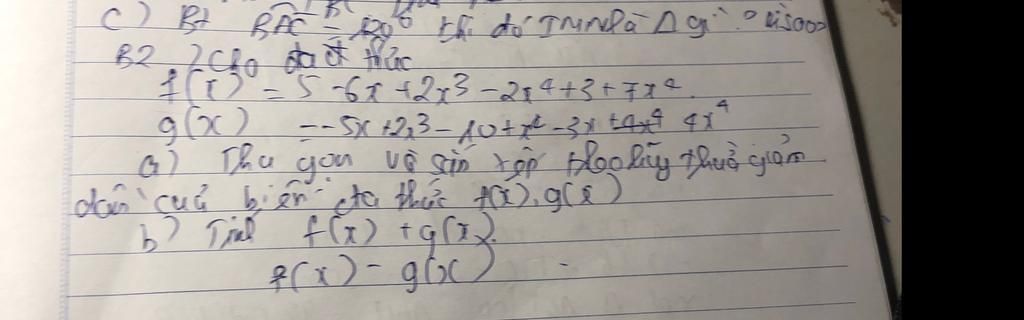 c) Bt BAC = 120° thì đó TMNP là Δ gì? vì sao?
B2 ) Cho đa thức
f(x) = 5 - 6x + 2x³ - 2x⁴ + 3 + 7x⁴
g(x) = -5x + 2x³ - 10 + x² - 3x 4x⁴
a) Thu gọn và sắp xếp theo lũy thừa giảm
dần của biến đa thức f(x), g(x)
b) Tính f(x) + g(x)
f(x) - g(x)